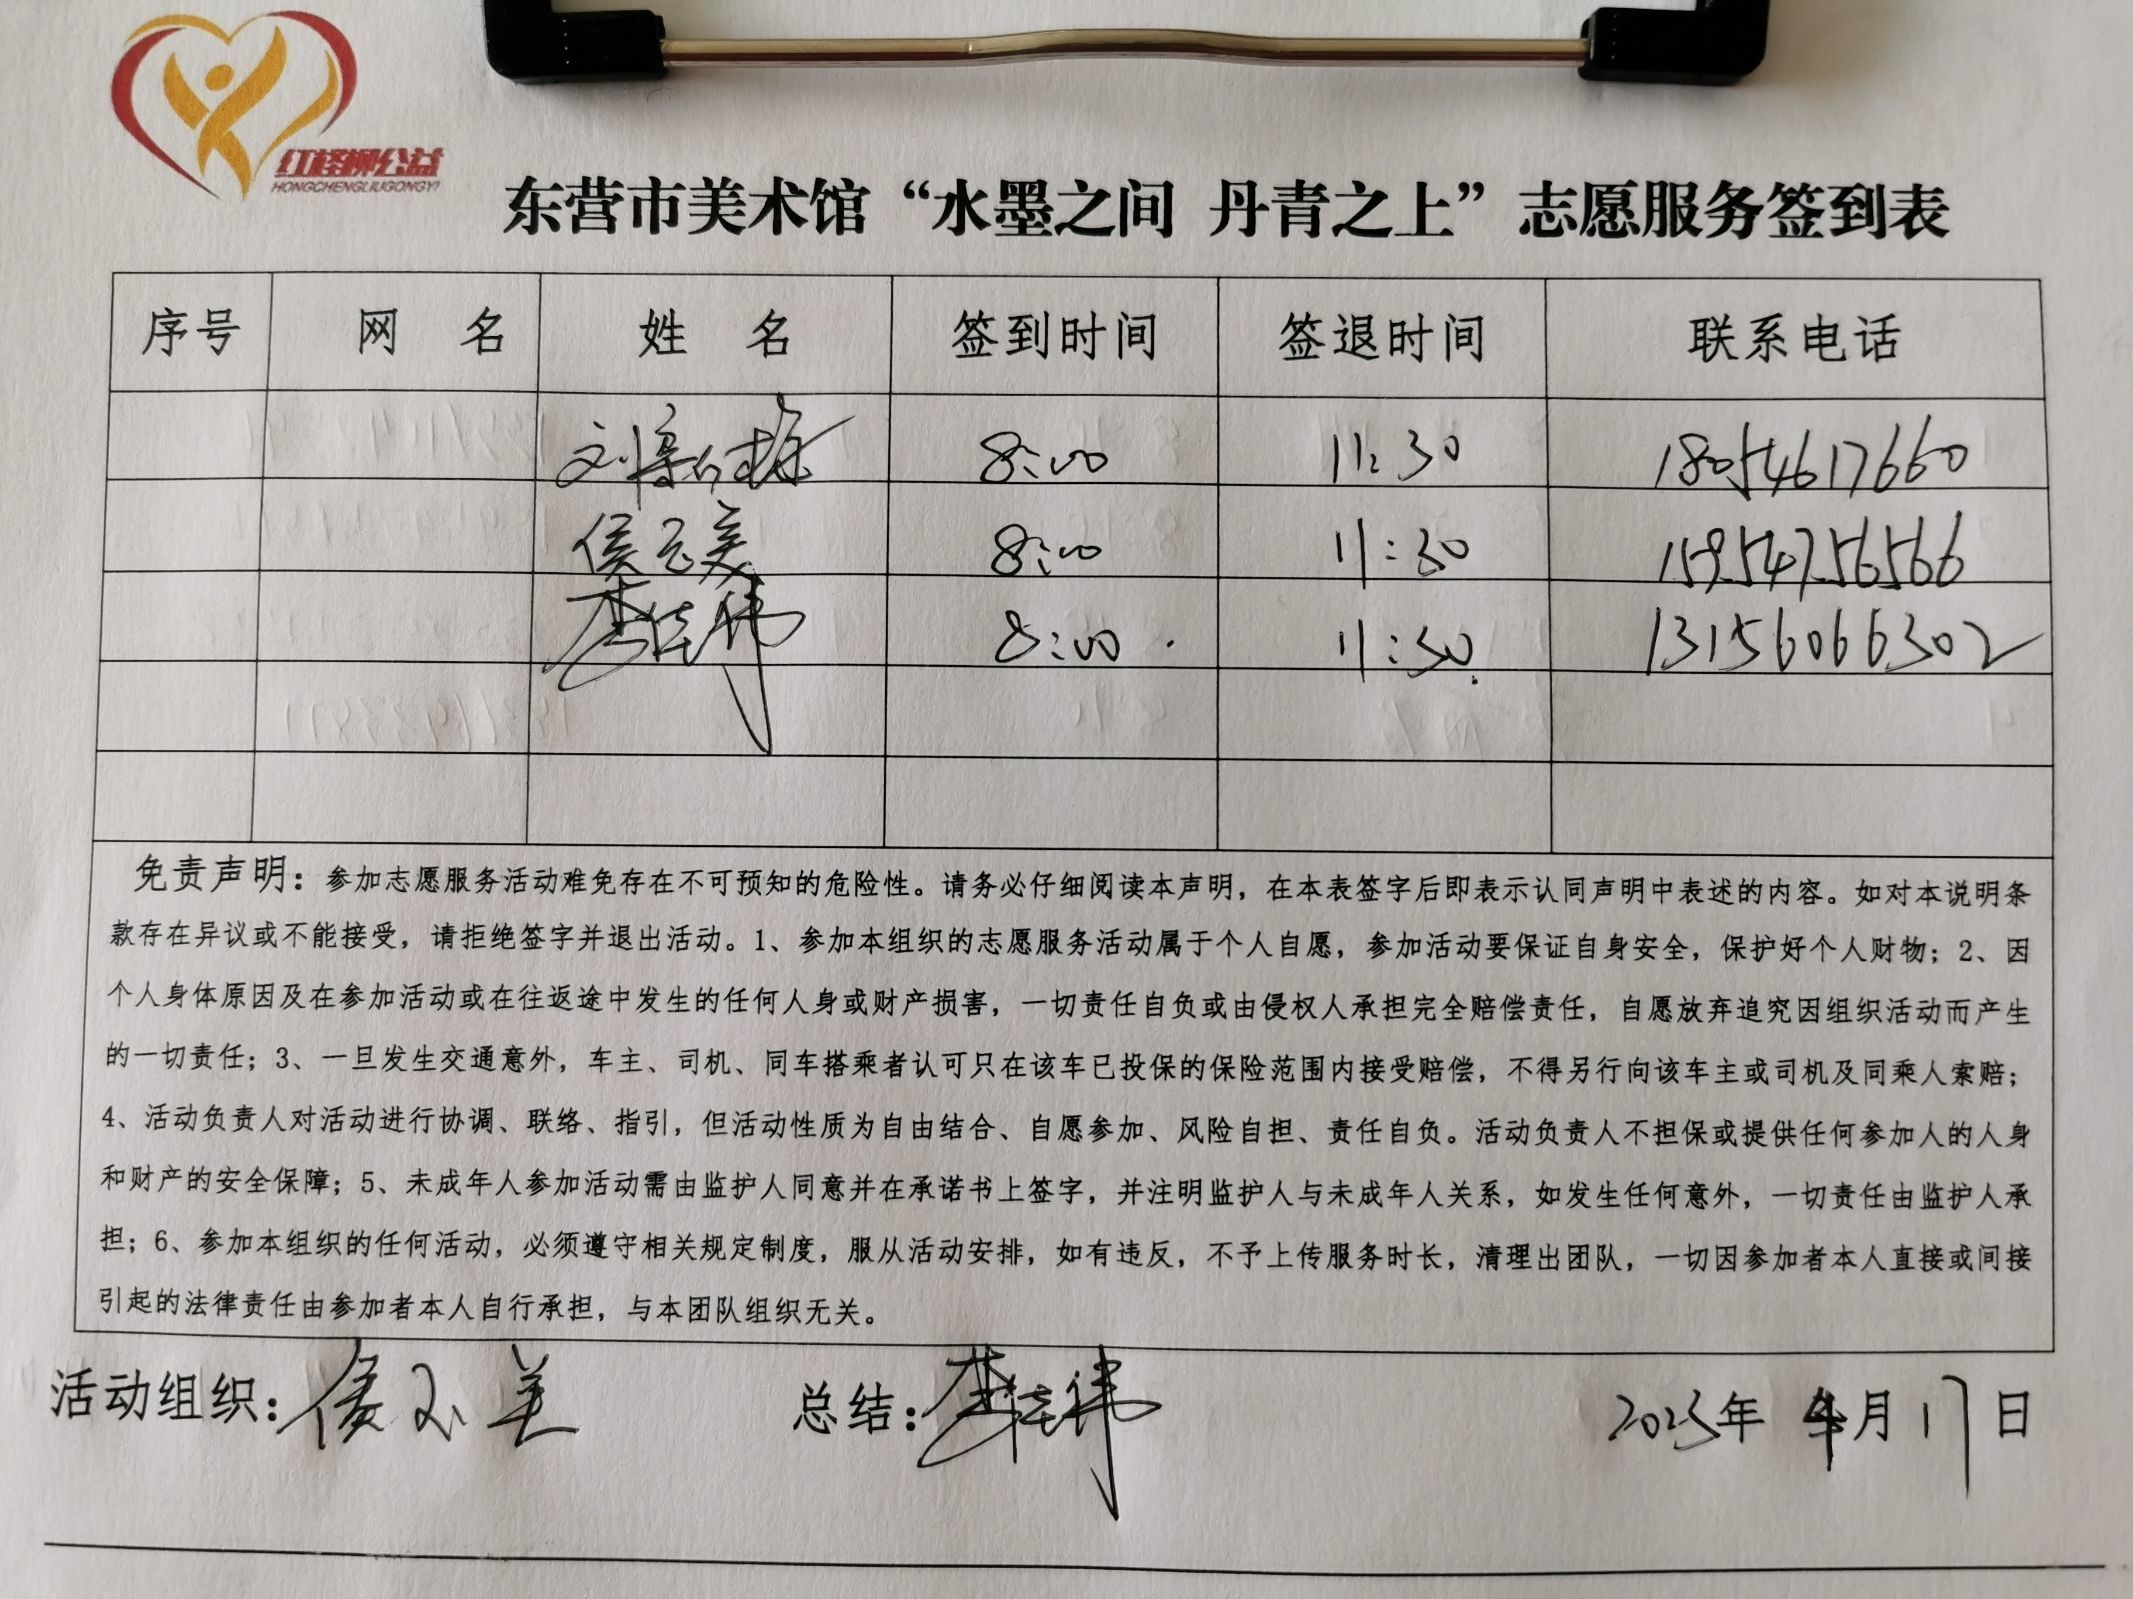 红柽柳公益
HONGCHENGLIUGONGYI
东营市美术馆“水墨之间 丹青之上”志愿服务签到表
序号 网 名 姓 名 签到时间 签退时间 联系电话
刘 8:00 11:30 18054617660
侯玉美 8:00 11:30 15954756566
李佳伟 8:00 11:30 13156066302
免责声明：参加志愿服务活动难免存在不可预知的危险性。请务必仔细阅读本声明，在本表签字后即表示认同声明中表述的内容。如对本说明条
款存在异议或不能接受，请拒绝签字并退出活动。1、参加本组织的志愿服务活动属于个人自愿，参加活动要保证自身安全，保护好个人财物；2、因
个人身体原因及在参加活动或在往返途中发生的任何人身或财产损害，一切责任自负或由侵权人承担完全赔偿责任，自愿放弃追究因组织活动而产生
的一切责任；3、一旦发生交通意外，车主、司机、同车搭乘者认可只在该车已投保的保险范围内接受赔偿，不得另行向该车主或司机及同乘人索赔；
4、活动负责人对活动进行协调、联络、指引，但活动性质为自由结合、自愿参加、风险自担、责任自负。活动负责人不担保或提供任何参加人的人身
和财产的安全保障；5、未成年人参加活动需由监护人同意并在承诺书上签字，并注明监护人与未成年人关系，如发生任何意外，一切责任由监护人承
担；6、参加本组织的任何活动，必须遵守相关规定制度，服从活动安排，如有违反，不予上传服务时长，清理出团队，一切因参加者本人直接或间接
引起的法律责任由参加者本人自行承担，与本团队组织无关。
活动组织：侯玉美 总结：李佳伟 2023年 4月17日